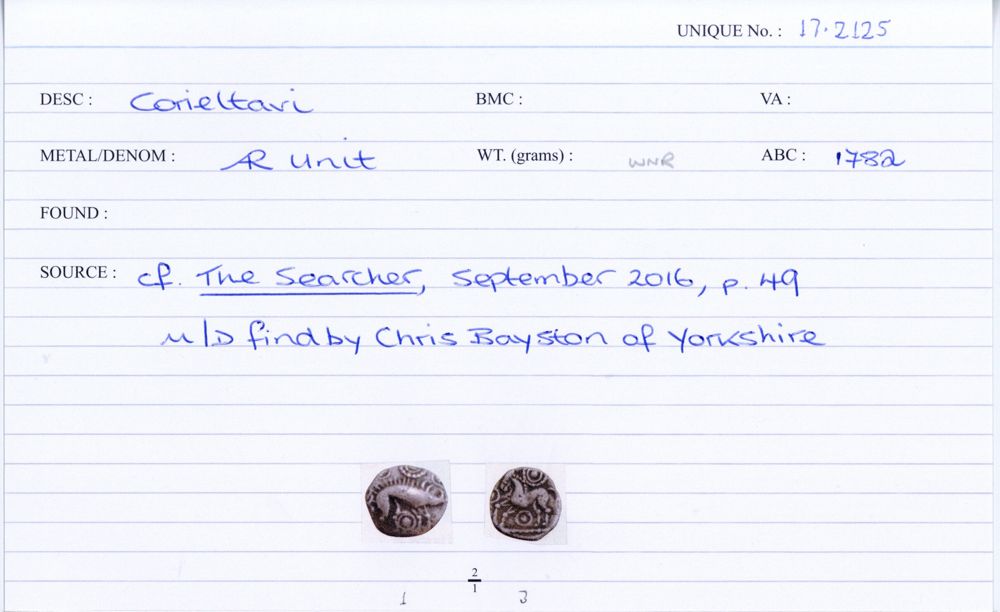 UNIQUE No. : 17.2125
DESC : Corieltavi BMC : VA :
METAL/DENOM : AR Unit WT. (grams) : WNR ABC : 1782
FOUND :
SOURCE : cf. The Searcher, September 2016, p. 49
M/D find by Chris Bayston of Yorkshire
2
1
1 3